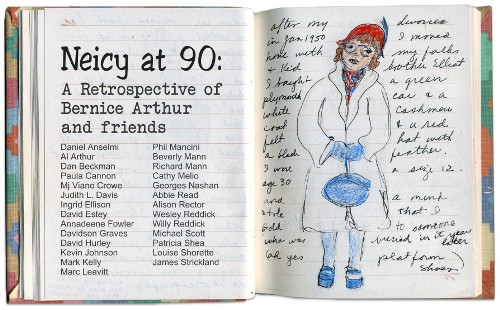 Neicy at 90:
A Retrospective of
Bernice Arthur
and friends
Daniel Anselmi
Al Arthur
Dan Beckman
Paula Cannon
Mj Viano Crowe
Judith L. Davis
Ingrid Ellison
David Estey
Annadeene Fowler
Davidson Graves
David Hurley
Kevin Johnson
Mark Kelly
Marc Leavitt
Phil Mancini
Beverly Mann
Richard Mann
Cathy Melio
Georges Nashan
Abbie Read
Alison Rector
Wesley Reddick
Willy Reddick
Michael Scott
Patricia Shea
Louise Shorette
James Strickland
after my divorce
in Jan 1950 I moved
home with my folks
& kid brother Elliot
I bought a green
plymouth car & a
white cashmere
coat & a red
felt hat with
a black feather.
I wore a size 12.
age 30
and a mink
stole that I
sold to someone
who was buried in it years
later
oh yes platform
shoes